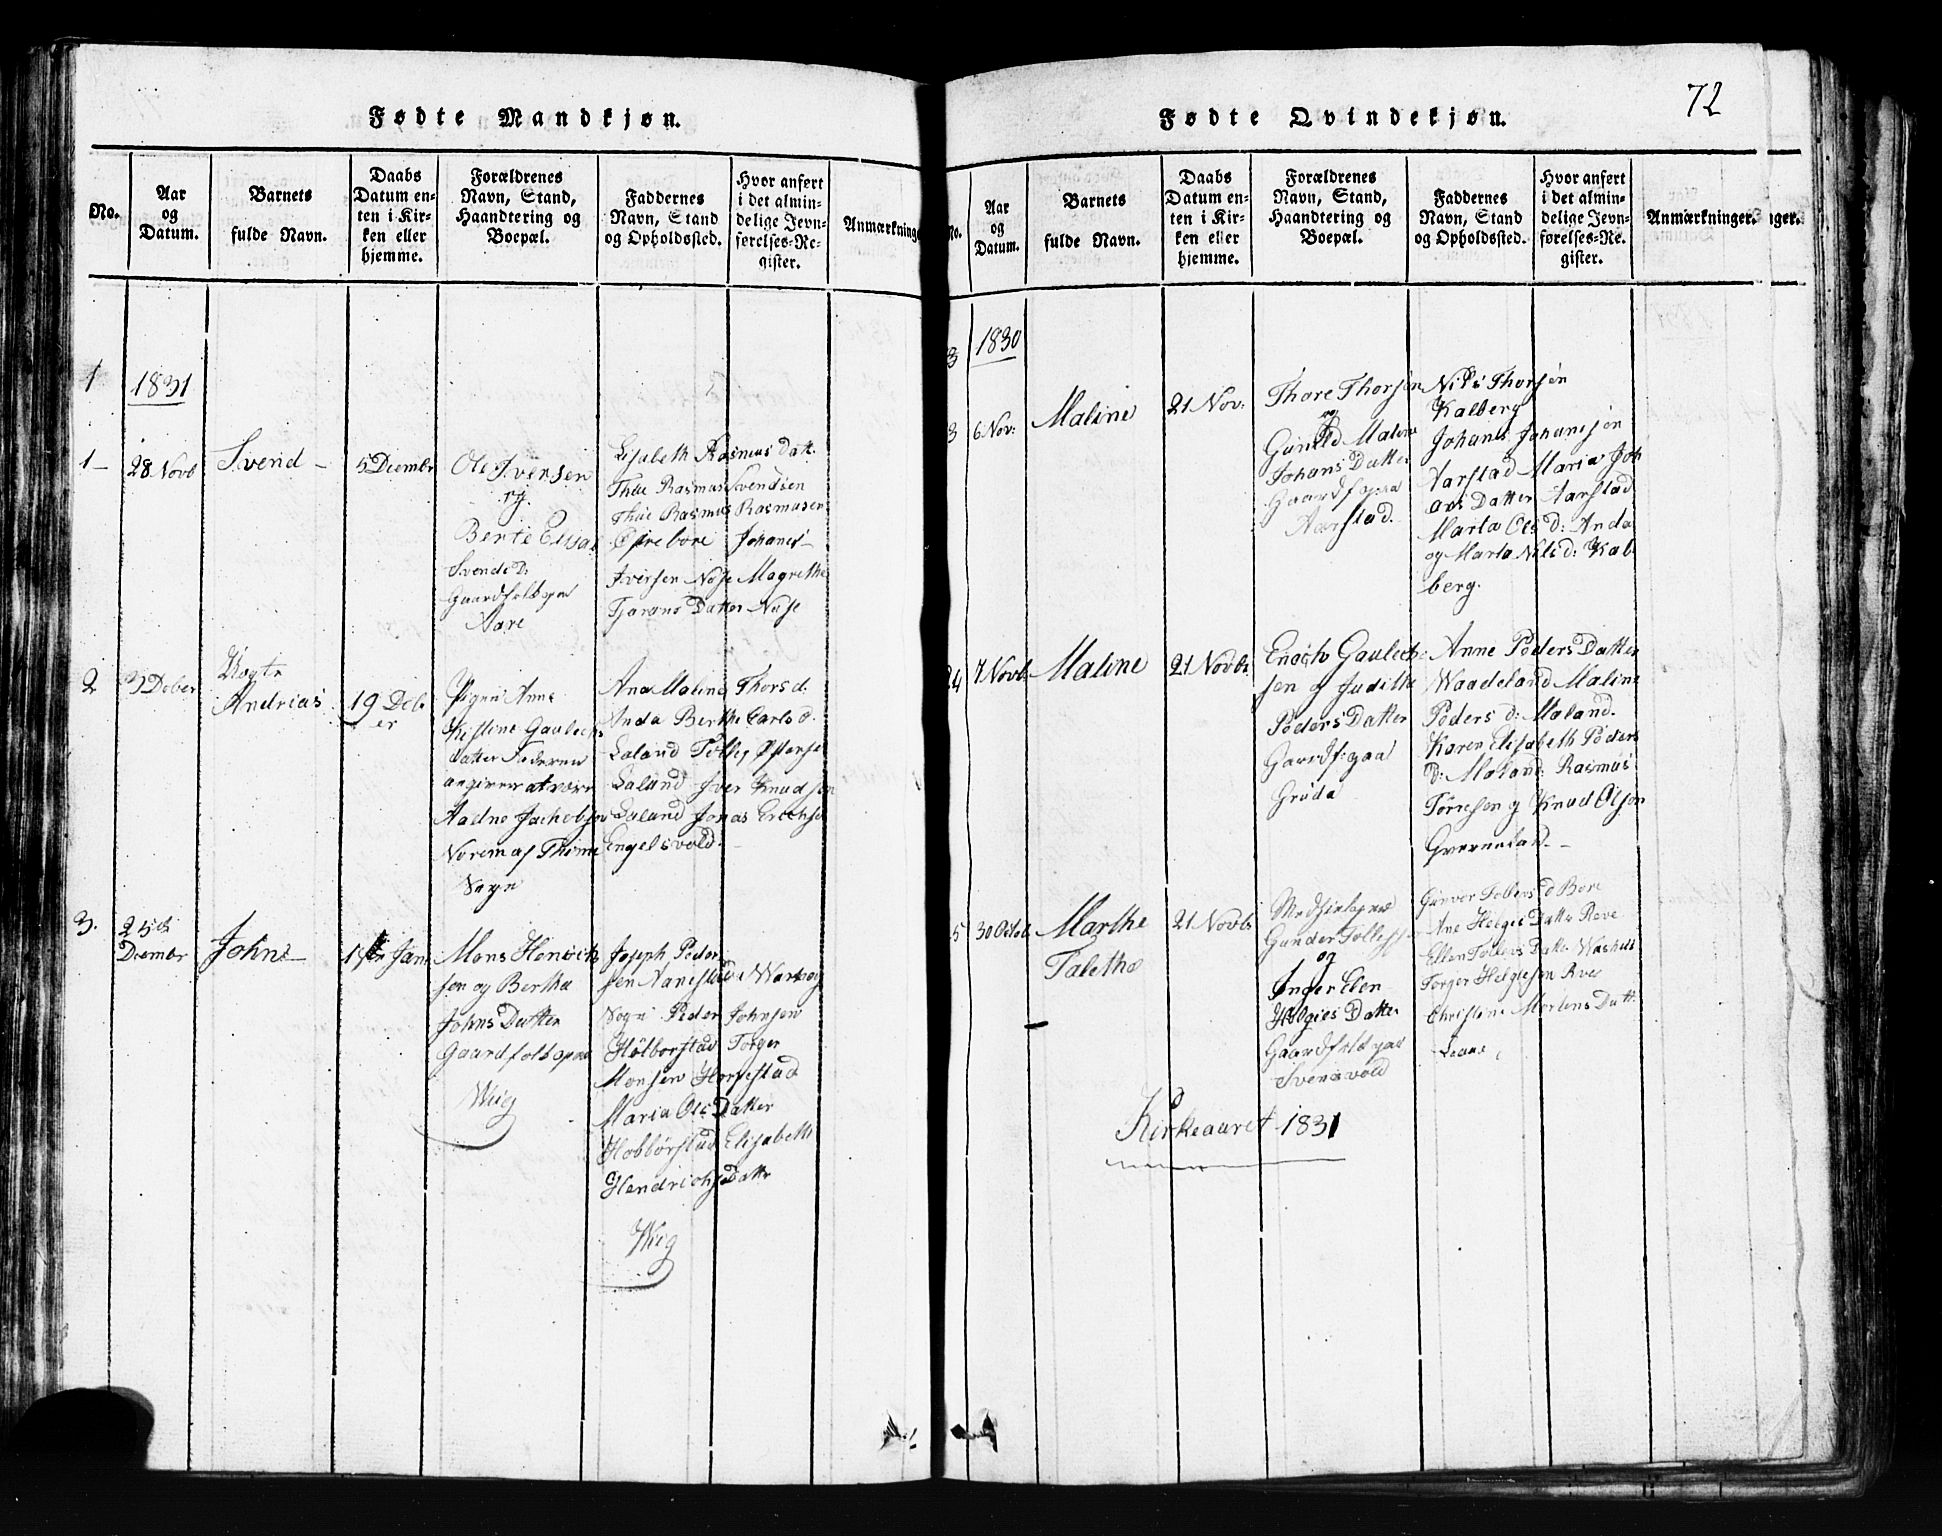 Fødte Mandkjøn.
No.
Aar
og
Datum.
Barnets
fulde Navn.
Daabs
Datum en-
ten i Kir-
ken eller
hjemme.
Forældrenes
Navn, Stand,
Haandtering og
Boepæl.
Faddernes
Navn, Stand
og Opholdssted.
Hvor anført
i det almin-
delige Jevn-
førelses-Re-
gister.
Anmærkninge
1
1831
1 –
28 Novb
Svend –
5 Decembr
Ole Iversen
og
Berte
Svends D:
Gaardfolk paa
Aare
Lisabeth Rasmus Datt.
Thue Rasmus Svendsen
Thue Rasmus Rasmusen
Johanes
Iversen Nese Magrethe
Tjarans Datter Nese
2
3 Dcber
Andrias
19 Dcb
er
Pigen Anne
Kistine Gaulechs
datter Faderen
angiven at være
Jachobsen
Norem af Thime
Sogn
Ana Malene Thors d.
Anda Berthe Carls d.
Laland Tolles
Laland Iver Knudsen
Laland Jonas
Engelsvold.
3.
25de
Decembr
Johns –
1ste Janr
Mons Henrich
sen og Bertha
Johns Datter
Gaardfolk paa
Wiig
Joseph Peder
sen
Sogn Peder Johnsen
Holborstad Torger
Monsen Horpestad
Maria Ols Datter
Hobborstad Elisabeth
Hendrichs Dattr
Wiig
72
Fødte Qvindekjøn.
No.
Aar
og
Datum.
Barnets
fulde Navn.
Daabs
Datum en-
ten i Kir-
ken eller
hjemme.
Forældrenes
Navn, Stand,
Haandtering og
Boepæl.
Faddernes
Navn, Stand
og Opholdssted.
Hvor anført
i det almin-
delige Jevn-
førelses-Re-
gister.
Anmærkninger.
nger.
3
1830
3
6 Nov:
Maline
21 Nov:
Thore Thorsen
og
Gunild Malene
Johans Datter
Gaardf paa
Aarstad.
Nils Thorsen
Kalberg
Johanes Johanesøn
Aarstad Maria Joh
ans Datter Aarstad
Marta Ols d: Anda
og Marta Nils d: Kal
berg.
24
7 Novb
Maline
21 Novbr
Enoch Gaulech
sen og Judithe
Peders Datter
Gaardf: paa
Gruda
Anne Peders Datter
Waadeland Maline
Peders d: Maland.
Karen Elisabeth Peders
D: Maland: Rasmus
Tørresen og Knud Olsøn
5
30 Octob
Marthe
Talethe
21 Novbr
Gunder Tollefs
og
Inger Elen
Helgies Datter
Gaardfolk paa
Svensvold
Gunvor Tollevs d Bore
Ane Helgies Datte Reve
Ellen Tollevs Datte
Torger Helgiesen Reve
Christine Mortens Datt
Kirkeaaret 1831